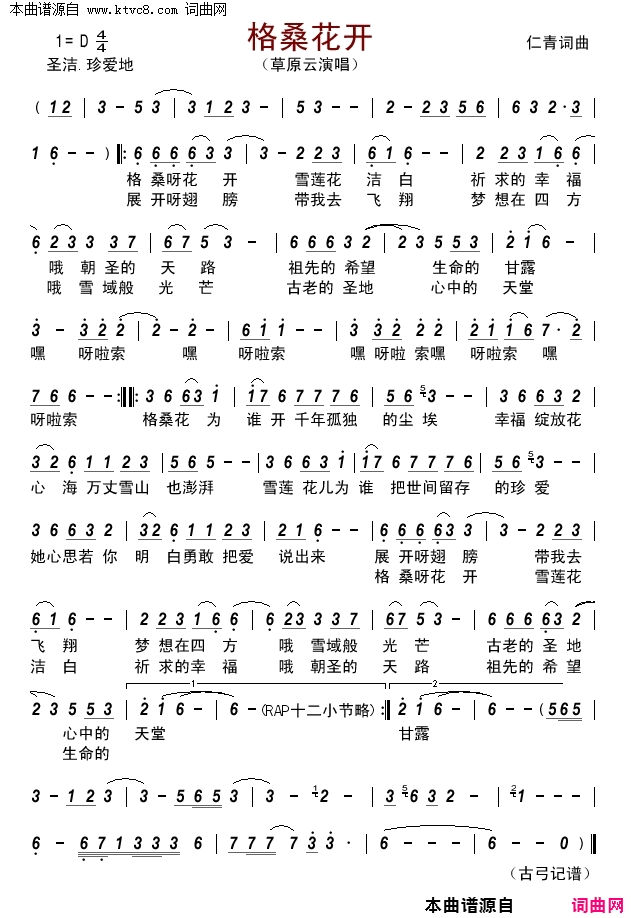 本曲谱源自 www.ktvc8.com 词曲网
格桑花开
1=D 4/4
仁青词曲
圣洁.珍爱地
（草原云演唱）
( 1 2 | 3 - 5 3 | 3 1 2 3 - | 5 3 3 - | 2 - 2 3 5 6 | 6 3 2· 3 |
1 6 - - ) ‖: 6 6 6 6 3 3 | 3 - 2 2 3 | 6 1 6 - - | 2 2 3 1 6 6 |
格 桑呀花 开 雪莲花 洁白 祈 求的 幸福
展 开呀翅 膀 带我去 飞翔 梦 想在 四方
6 2 3 3 3 7 | 6 7 5 3 - | 6 6 6 3 2 | 2 3 5 5 3 | 2 1 6 - |
哦 朝 圣的 天 路 祖先的 希望 生命的 甘露
哦 雪 域般 光 芒 古老的 圣地 心中的 天堂
3 - 3 2 2 | 2 - 2 - | 6 1 1 - | 3 3 2 2 2 | 2 1 1 6 7· 2 |
嘿 呀啦索 嘿 呀啦索 嘿 呀啦 索嘿 呀啦索 嘿
7 6 6 - - :‖: 3 6 6 3 1 | 1 7 6 7 7 7 6 | 5 6 5 3 - - | 3 6 6 3 2 |
呀啦索 格桑花 为 谁 开 千年孤独 的尘 埃 幸福 绽放花
3 2 6 2 2 3 2 | 5 6 5 - | 3 6 6 3 1 | 1 7 6 7 7 7 6 | 5 6 5 3 - - |
心 海 万丈雪山 也澎湃 雪莲 花儿为 谁 把世间留存 的珍 爱
3 6 6 3 2 | 3 2 6 1 1 2 3 | 2 1 6 - | 6 6 6 6 3 3 | 3 - 2 2 3 |
她心思若 你 明 白勇敢 把爱 说出来 展 开呀翅 膀 带我去
格 桑呀花 开 雪莲花
6 1 6 - - | 2 2 3 1 6 6 | 6 2 3 3 3 7 | 6 7 5 3 - | 6 6 6 6 3 2 |
飞 翔 梦 想在 四 方 哦 雪域般 光 芒 古老的 圣 地
洁 白 祈 求的 幸 福 哦 朝圣的 天 路 祖先的 希 望
1 2
2 3 5 5 3 | 2 1 6 - | 6 - (RAP十二小节略) :‖ 2 1 6 - | 6 - - (5 6 5 |
心中的 天堂 甘露
生命的
3 - 1 2 3 | 3 - 5 6 5 3 | 3 - 1 2 - | 3 5 6 3 2 | 3 - 2 1 - |
6 - - 6 7 1 3 3 3 | 6 - - - | 7 7 7 7 3 3 | 6 - - - | 6 - - 0 ) ‖
（古弓记谱）
本曲谱源自 词曲网